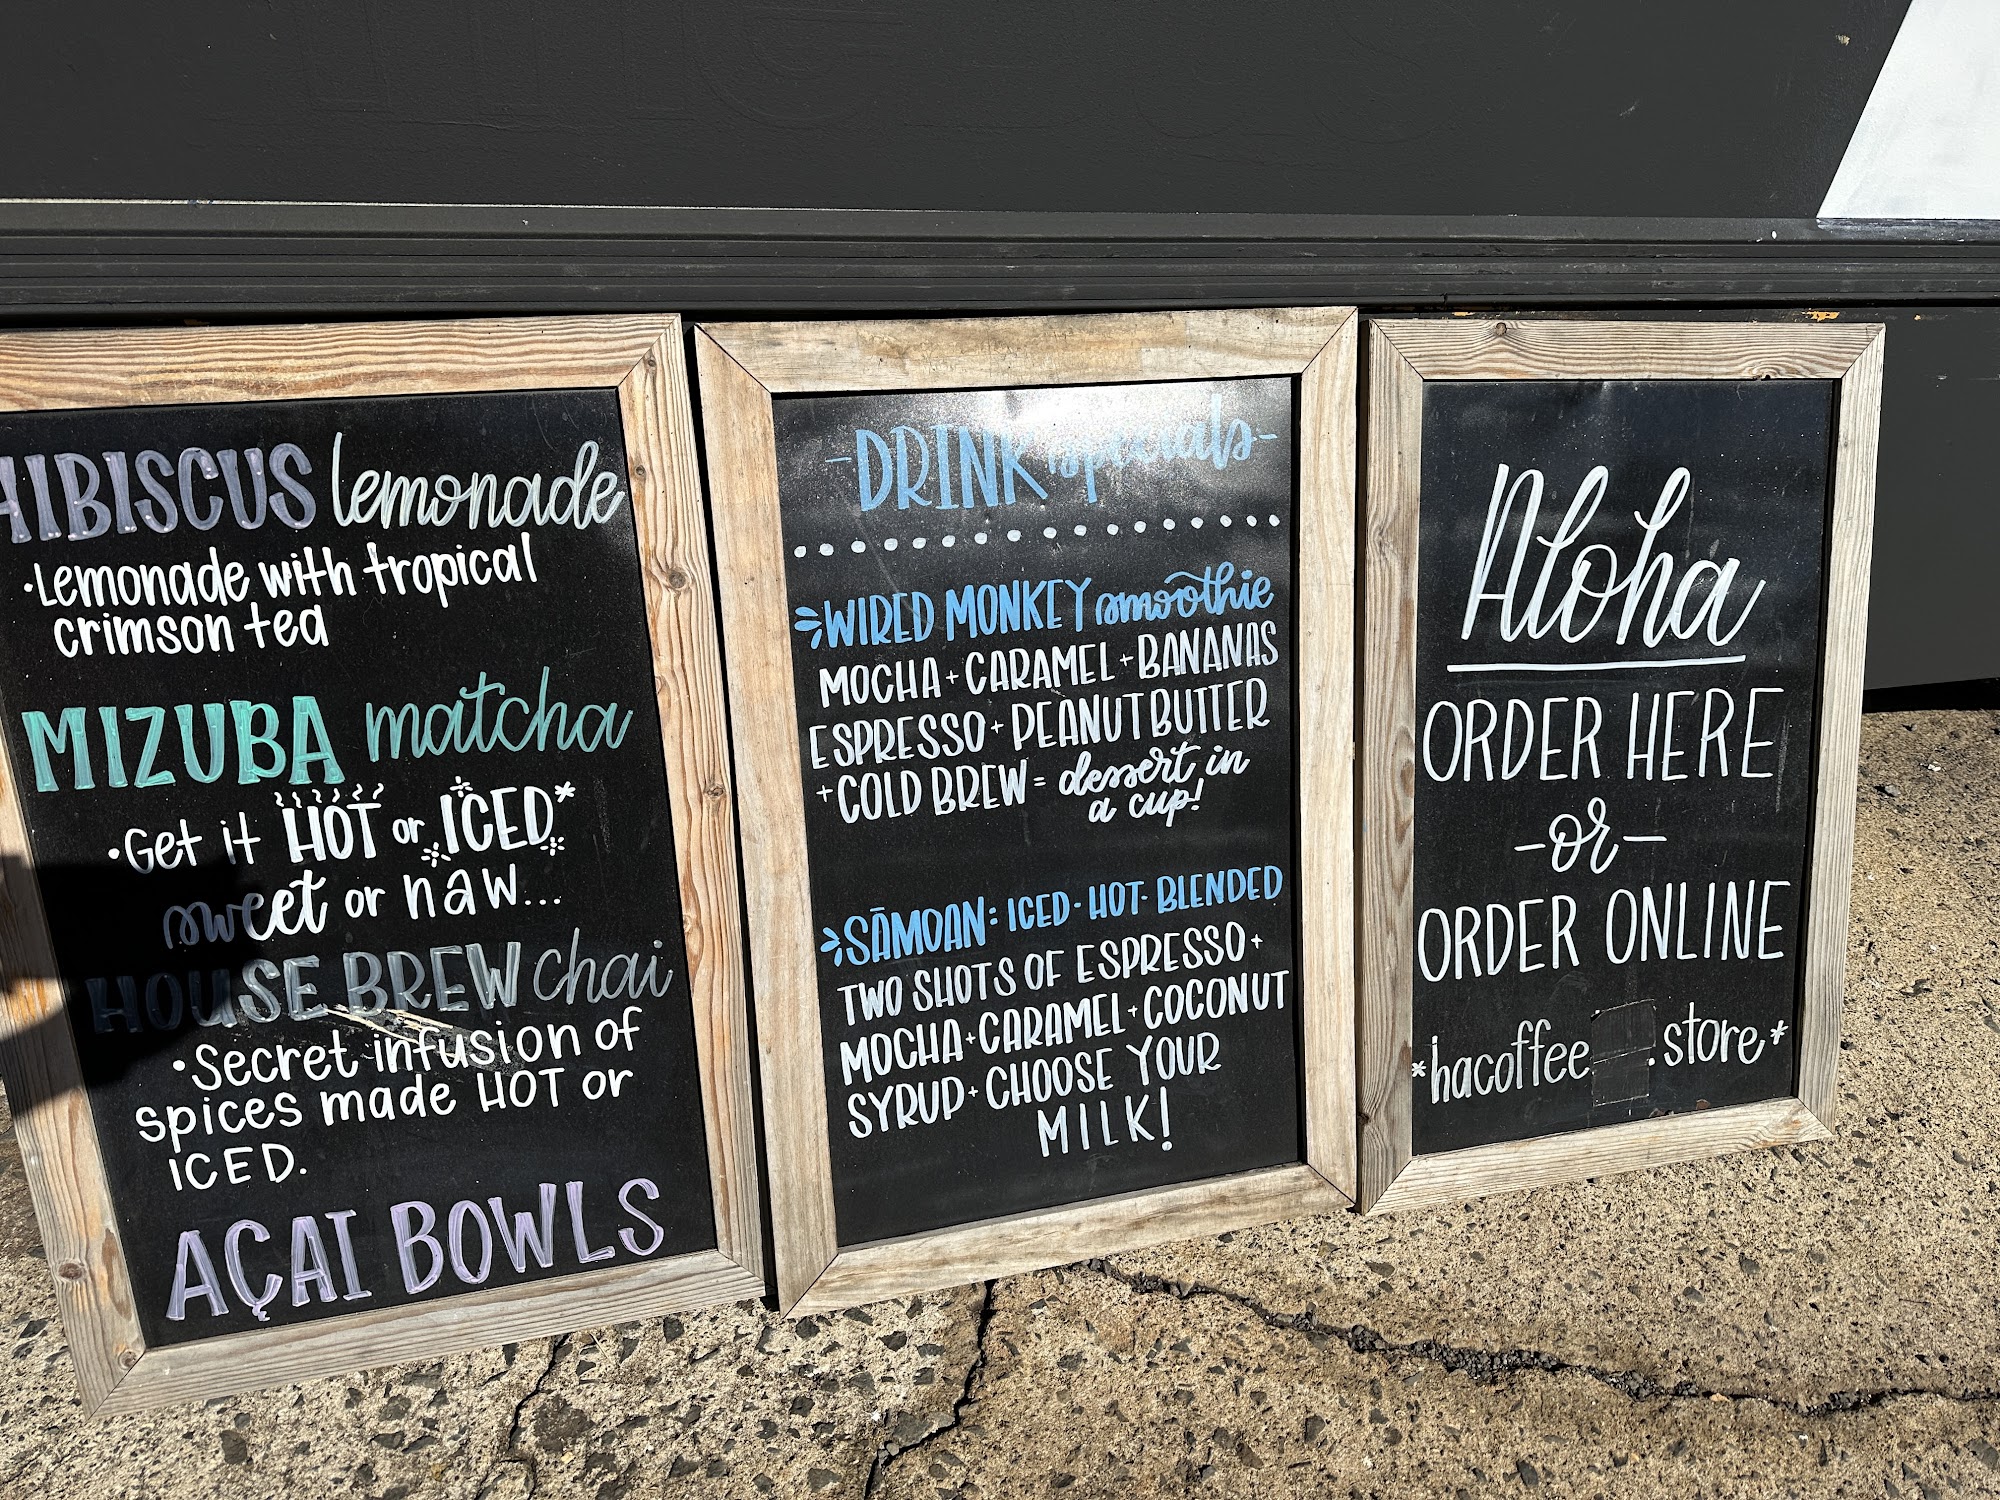 HIBISCUS lemonade
·Lemonade with tropical
crimson tea
MIZUBA matcha
·Get it HOT or ICED*
sweet or naw...
HOUSE BREW chai
·Secret infusion of
spices made HOT or
ICED.
AÇAI BOWLS
-DRINK specials-
WIRED MONKEY smoothie
MOCHA+CARAMEL+BANANAS
ESPRESSO+PEANUT BUTTER
+COLD BREW= dessert in
a cup!
SĀMOAN: ICED·HOT·BLENDED
TWO SHOTS OF ESPRESSO+
MOCHA+CARAMEL+COCONUT
SYRUP+CHOOSE YOUR
MILK!
Aloha
ORDER HERE
-or-
ORDER ONLINE
*hacoffee .store*